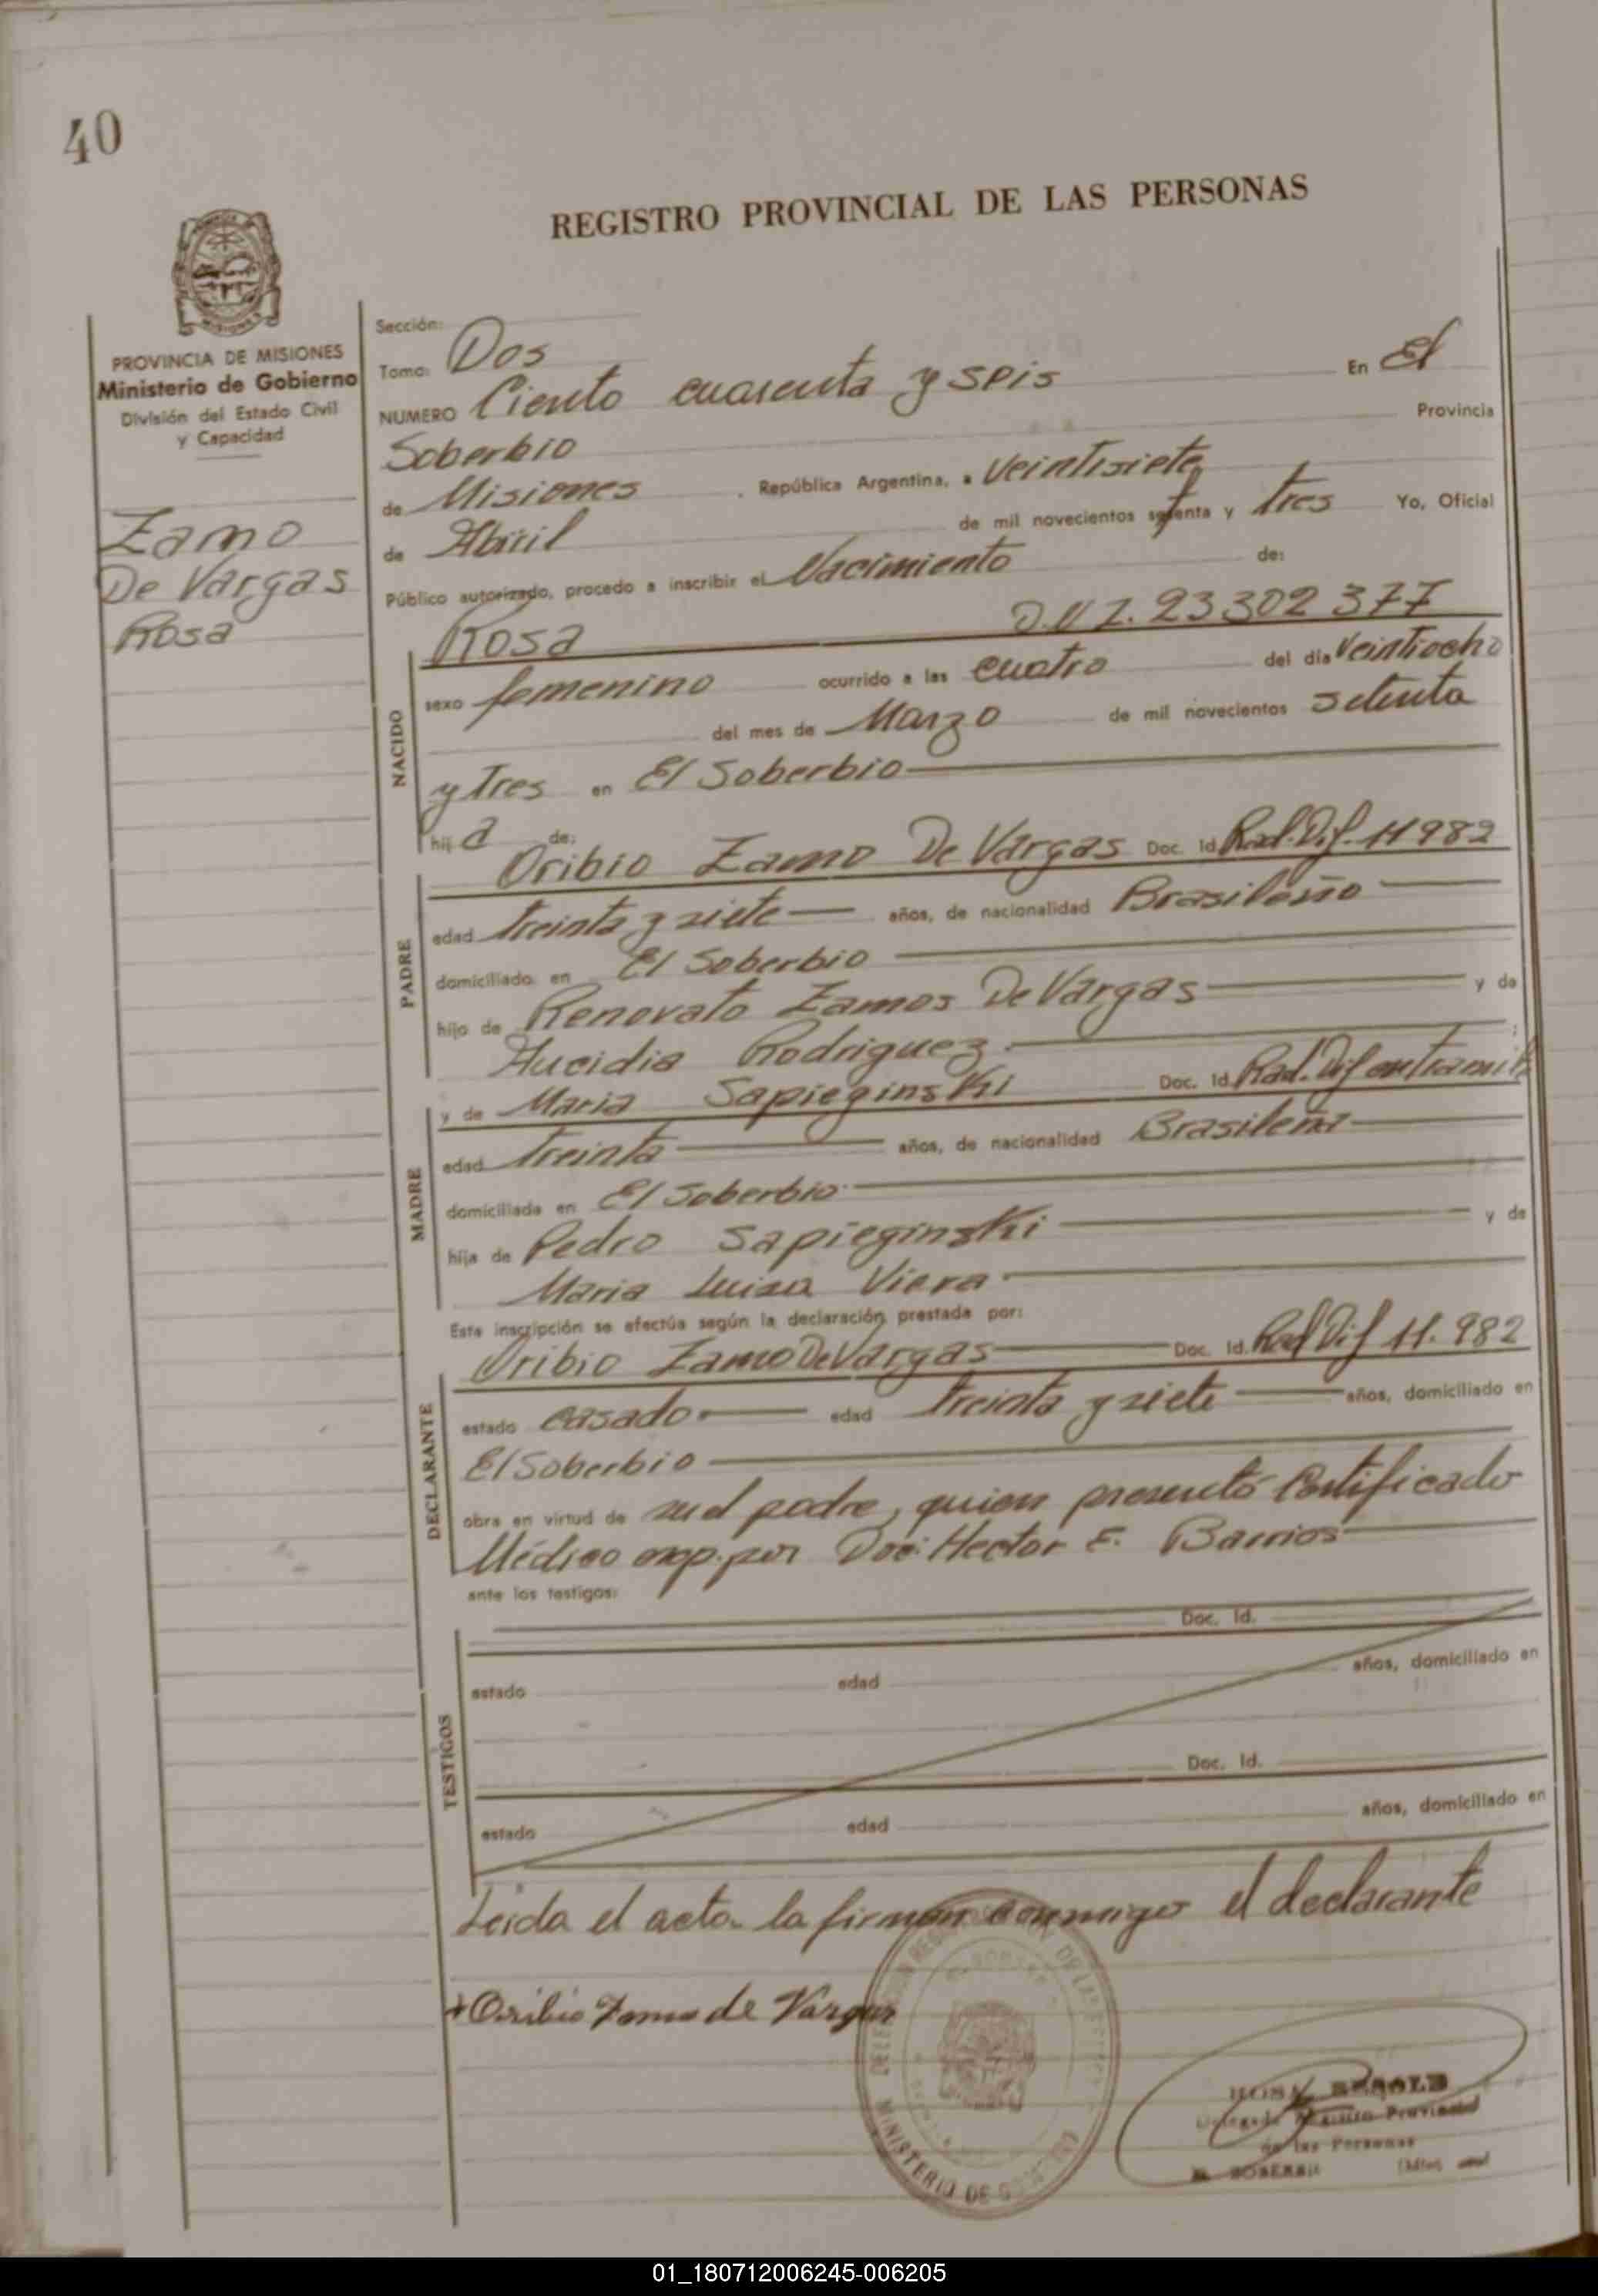 40
REGISTRO PROVINCIAL DE LAS PERSONAS
PROVINCIA DE MISIONES
Ministerio de Gobierno
División del Estado Civil
y Capacidad
Zamo
De Vargas
Rosa
Sección:
Tomo: Dos
NUMERO Ciento cuarenta y seis En El
Soberbio Provincia
de Misiones, República Argentina, a veintisiete
de Abril de mil novecientos setenta y tres Yo, Oficial
Público autorizado, procedo a inscribir el Nacimiento de:
Rosa D.N.I. 23302377
NACIDO
sexo femenino ocurrido a las cuatro del día veintiocho
del mes de Marzo de mil novecientos setenta
y Tres en El Soberbio
hij a de:
Oribio Zamo De Vargas Doc. Id. Rad. Dif. 11982
PADRE
edad treinta y siete años, de nacionalidad Brasileño
domiciliado en El Soberbio
hijo de Renovato Zamos De Vargas y de
Rodriguez ;
y de Maria Sapieginski Doc. Id. Rad. Dif en tramite
MADRE
edad treinta años, de nacionalidad Brasileña
domiciliada en El Soberbio
hija de Pedro Sapieginski y de
Maria Luisa Viera
Esta inscripción se efectúa según la declaración prestada por:
Oribio Zamo De Vargas Doc. Id. Rad Dif 11.982
DECLARANTE
estado casado edad treinta y siete años, domiciliado en
El Soberbio
obra en virtud de ser el padre, quien presentó Certificado
Médico exp. por Hector E. Barrios
ante los testigos:
TESTIGOS
Doc. Id.
estado edad años, domiciliado en
Doc. Id.
estado edad años, domiciliado en
Leida el acta la firman conmigo el declarante
+Oribio Zamo de Vargas
MINISTERIO DE
Registro Provincial
de las Personas
01_180712006245-006205